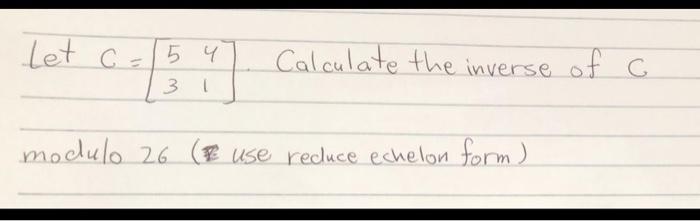 Let C = [5 4] . Calculate the inverse of C
[3 1]
modulo 26 ( use reduce echelon form)